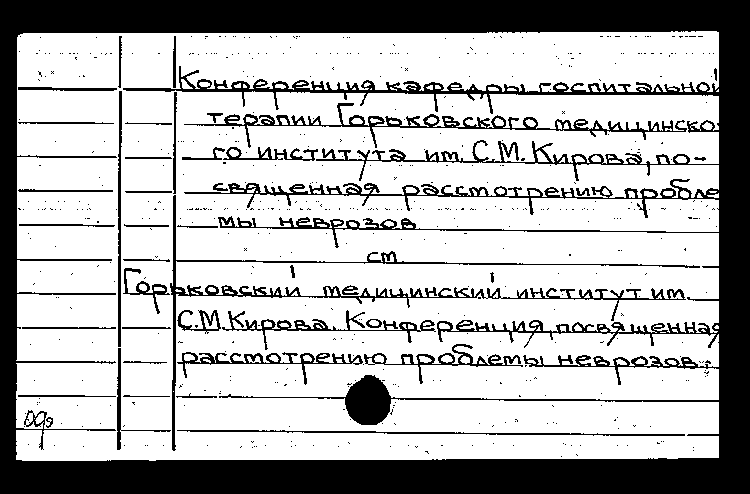 Конференция кафедры госпитальной
терапии Горьковского медицинско-
го института им. С.М. Кирова, по-
священная рассмотрению пробле
мы неврозов
см
Горьковский медицинский институт им.
С.М. Кирова. Конференция, посвященная
рассмотрению проблемы неврозов.